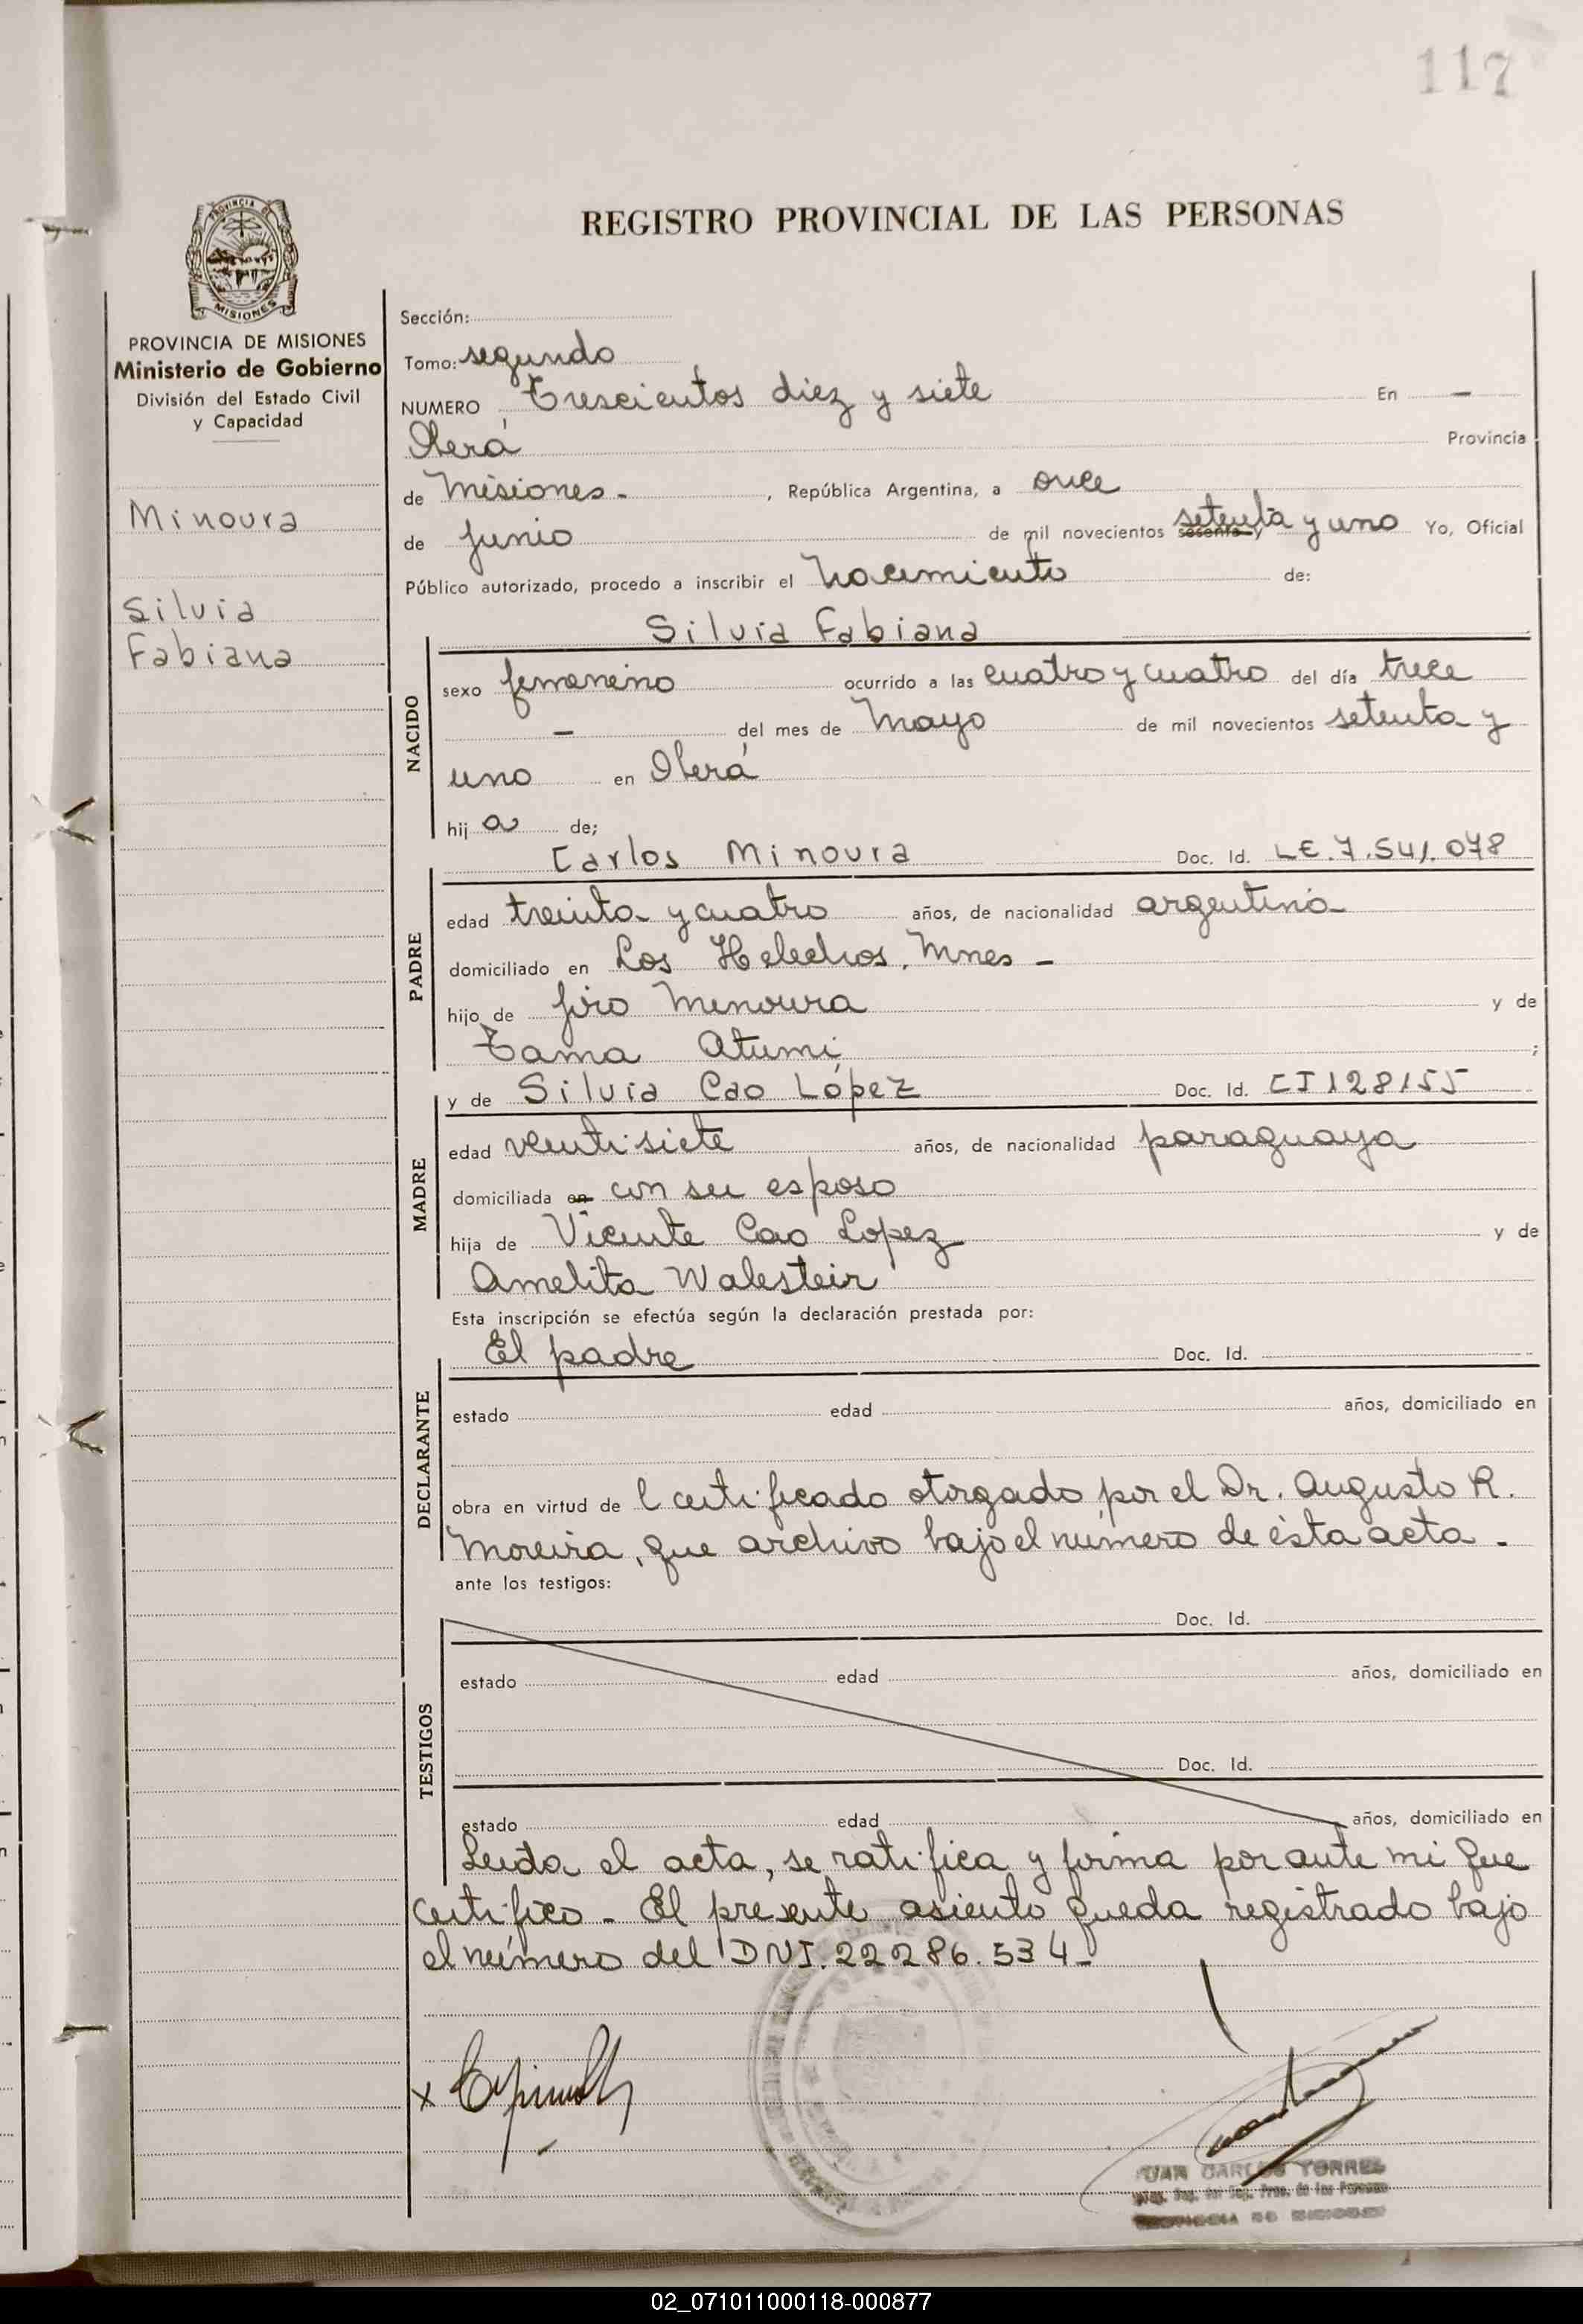 117
REGISTRO PROVINCIAL DE LAS PERSONAS
PROVINCIA DE
MISIONES
PROVINCIA DE MISIONES
Ministerio de Gobierno
División del Estado Civil
y Capacidad
Minoura
Silvia
Fabiana
Sección:
Tomo: segundo
NUMERO Trescientos diez y siete En —
Oberá Provincia
de Misiones - , República Argentina, a once
de Junio de mil novecientos sesenta y setenta y uno Yo, Oficial
Público autorizado, procedo a inscribir el Nacimiento de:
Silvia Fabiana
NACIDO
sexo femenino ocurrido a las cuatro y cuatro del día trece
— del mes de Mayo de mil novecientos setenta y
uno en Oberá
hij a de;
Carlos Minoura Doc. Id. LE. 7.541.078
PADRE
edad treinta y cuatro años, de nacionalidad argentina
domiciliado en Los Helechos, Mnes -
hijo de Jiro Minoura y de
Tama Atumi ;
y de Silvia Cao López Doc. Id. CI 128155
MADRE
edad veintisiete años, de nacionalidad paraguaya
domiciliada en con su esposo
hija de Vicente Cao Lopez y de
Amelita Walestein
Esta inscripción se efectúa según la declaración prestada por:
El padre Doc. Id.
DECLARANTE
estado edad años, domiciliado en
obra en virtud de l certificado otorgado por el Dr. Augusto R.
Moreira, que archivo bajo el número de ésta acta.
ante los testigos:
Doc. Id.
TESTIGOS
estado edad años, domiciliado en
Doc. Id.
estado edad años, domiciliado en
Leida el acta, se ratifica y firma por ante mi que
certifico - El presente asiento queda registrado bajo
el número del DNI. 22286.534-
x
JUAN CARLOS TORRES
02_071011000118-000877